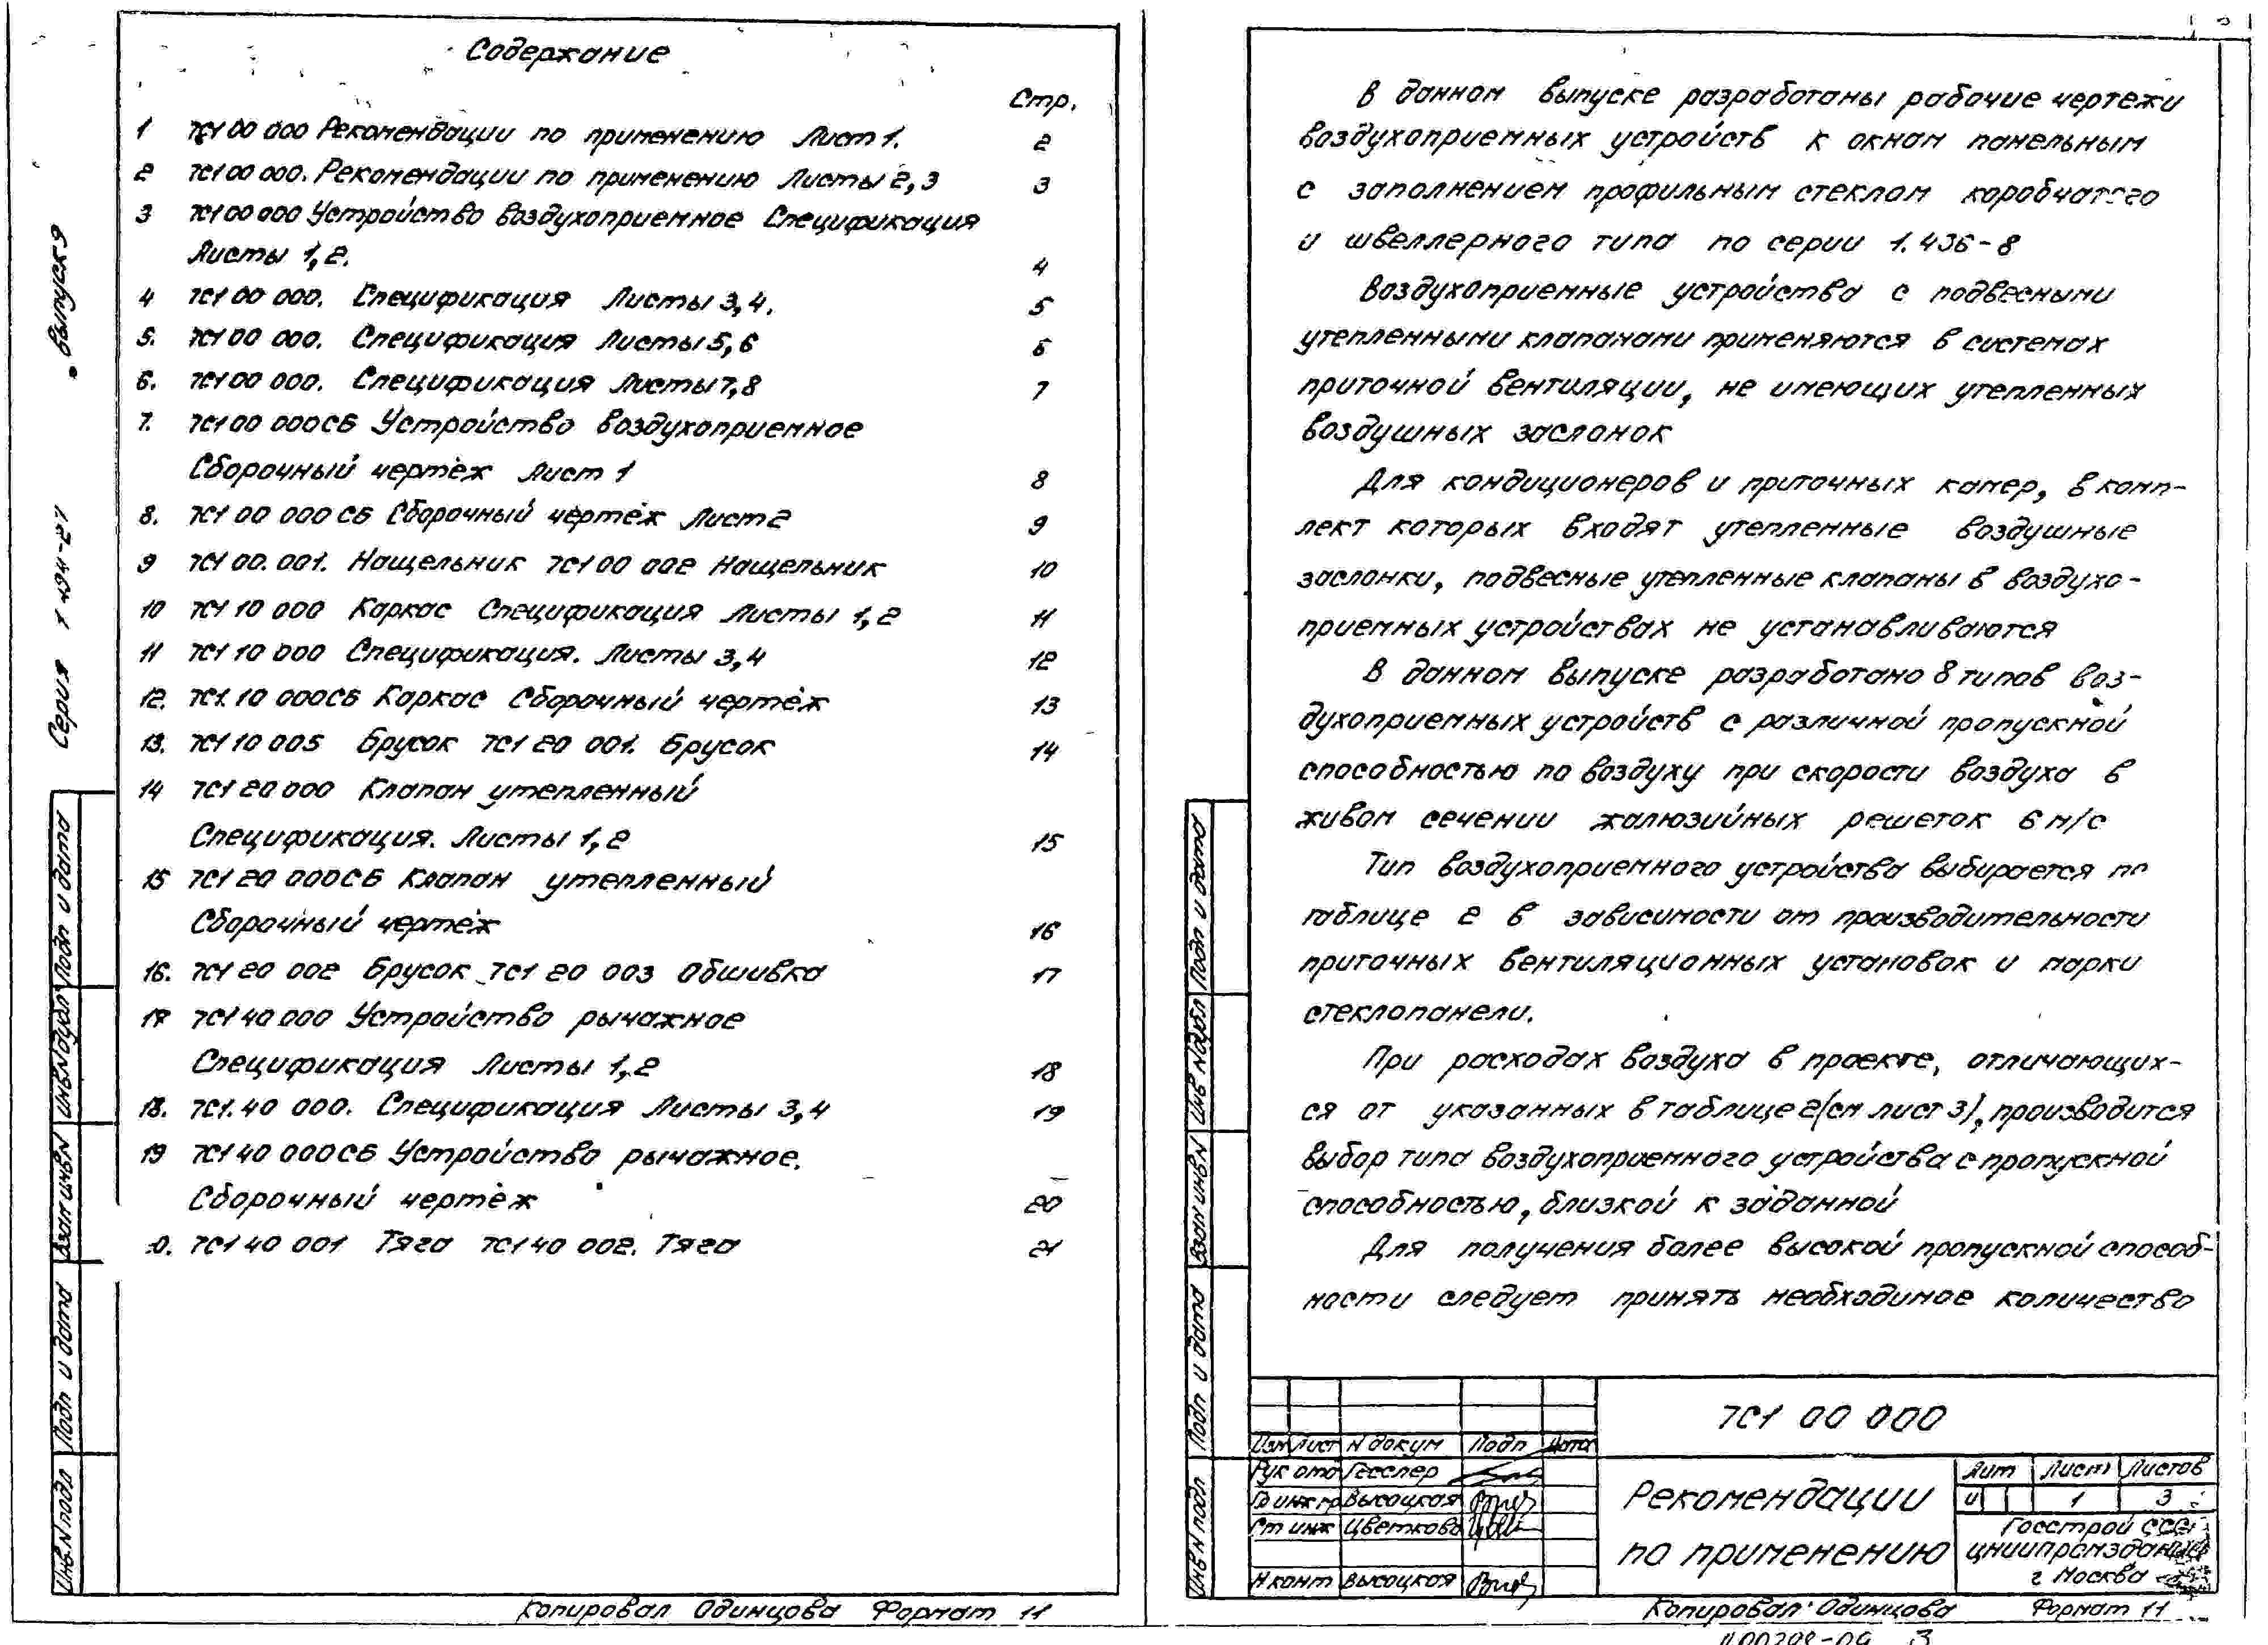 Содержание
Стр.
1 7С1 00 000 Рекомендации по применению Лист 1. 2
2 7С1 00 000. Рекомендации по применению Листы 2, 3 3
3 7С1 00 000 Устройство воздухоприемное Спецификация
Листы 1, 2. 4
4 7С1 00 000. Спецификация Листы 3, 4. 5
5. 7С1 00 000. Спецификация Листы 5, 6 6
6. 7С1 00 000. Спецификация Листы 7, 8 7
7. 7С1 00 000СБ Устройство воздухоприемное
Сборочный чертёж Лист 1 8
8. 7С1 00 000 СБ Сборочный чертёж Лист 2 9
9 7С1 00.001. Нащельник 7С1 00 002 Нащельник 10
10 7С1 10 000 Каркас Спецификация Листы 1, 2 11
11 7С1 10 000 Спецификация. Листы 3, 4 12
12. 7С1. 10 000СБ Каркас Сборочный чертёж 13
13. 7С1 10 005 Брусок 7С1 20 001. Брусок 14
14 7С1 20 000 Клапан утепленный
Спецификация. Листы 1, 2 15
15 7С1 20 000СБ Клапан утепленный
Сборочный чертёж 16
16. 7С1 20 002 Брусок 7С1 20 003 Обшивка 17
17 7С1 40 000 Устройство рычажное
Спецификация Листы 1, 2 18
18. 7С1. 40 000. Спецификация Листы 3, 4 19
19 7С1 40 000СБ Устройство рычажное.
Сборочный чертёж 20
0. 7С1 40 001 Тяга 7С1 40 002. Тяга 21
Серия 1 494-27 Выпуск 9
Подп и дата
Инв N дубл
Взам инв N
Подп и дата
Инв N подл
Копировал Одинцова Формат 11
В данном выпуске разработаны рабочие чертежи
воздухоприемных устройств к окнам панельным
с заполнением профильным стеклом коробчатого
и швеллерного типа по серии 1.436-8
Воздухоприемные устройства с подвесными
утепленными клапанами применяются в системах
приточной вентиляции, не имеющих утепленных
воздушных заслонок
Для кондиционеров и приточных камер, в комп-
лект которых входят утепленные воздушные
заслонки, подвесные утепленные клапаны в воздухо-
приемных устройствах не устанавливаются
В данном выпуске разработано 8 типов воз-
духоприемных устройств с различной пропускной
способностью по воздуху при скорости воздуха в
живом сечении жалюзийных решеток 6 м/с
Тип воздухоприемного устройства выбирается по
таблице 2 в зависимости от производительности
приточных вентиляционных установок и марки
стеклопанели.
При расходах воздуха в проекте, отличающих-
ся от указанных в таблице 2 (см лист 3), производится
выбор типа воздухоприемного устройства с пропускной
способностью, близкой к заданной
Для получения более высокой пропускной способ-
ности следует принять необходимое количество
Подп и дата
Инв N дубл
Взам инв N
Подп и дата
Инв N подл
7С1 00 000
Изм Лист N докум Подп Дата
Рук отд Гесслер
Гл инж пр Высоцкая
Ст инж Цветкова
Н конт Высоцкая
Рекомендации
по применению
Лит Лист Листов
И 1 3
Госстрой СССР
ЦНИИпромзданий
г Москва
Копировал Одинцова Формат 11
3